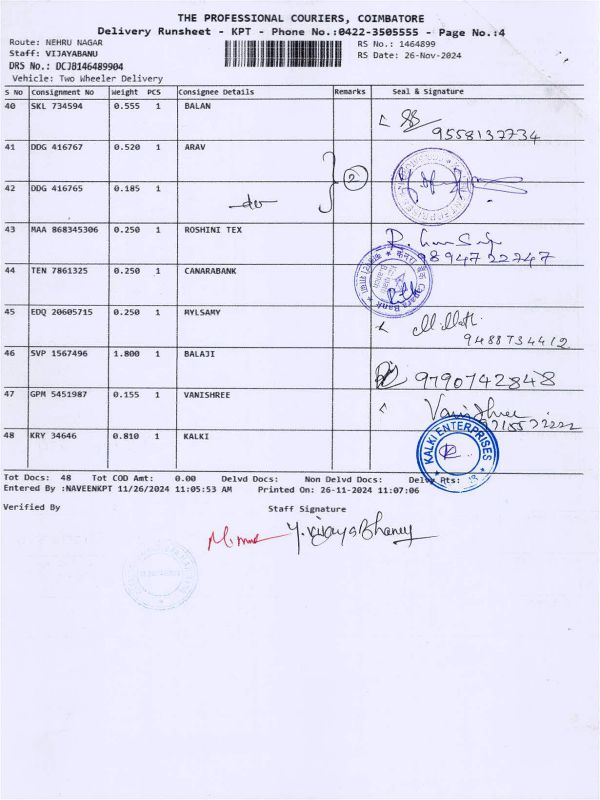 THE PROFESSIONAL COURIERS, COIMBATORE
Delivery Runsheet - KPT - Phone No.:0422-3505555 - Page No.:4
Route: NEHRU NAGAR RS No.: 1464899
Staff: VIJAYABANU RS Date: 26-Nov-2024
DRS No.: DCJB146489904
Vehicle: Two Wheeler Delivery
S No Consignment No Weight PCS Consignee Details Remarks Seal & Signature
40 SKL 734594 0.555 1 BALAN
9558132734
41 DDG 416767 0.520 1 ARAV
2
42 DDG 416765 0.185 1
do
43 MAA 868345306 0.250 1 ROSHINI TEX
9894722747
44 TEN 7861325 0.250 1 CANARABANK
केनरा बैंक Canara Bank
45 EDQ 20605715 0.250 1 MYLSAMY
9488734412
46 SVP 1567496 1.800 1 BALAJI
9790742848
47 GPM 5451987 0.155 1 VANISHREE
Vanishree
48 KRY 34646 0.810 1 KALKI
KALKI ENTERPRISES
Tot Docs: 48 Tot COD Amt: 0.00 Delvd Docs: Non Delvd Docs: Delvy Pts:
Entered By :NAVEENKPT 11/26/2024 11:05:53 AM Printed On: 26-11-2024 11:07:06
Verified By Staff Signature